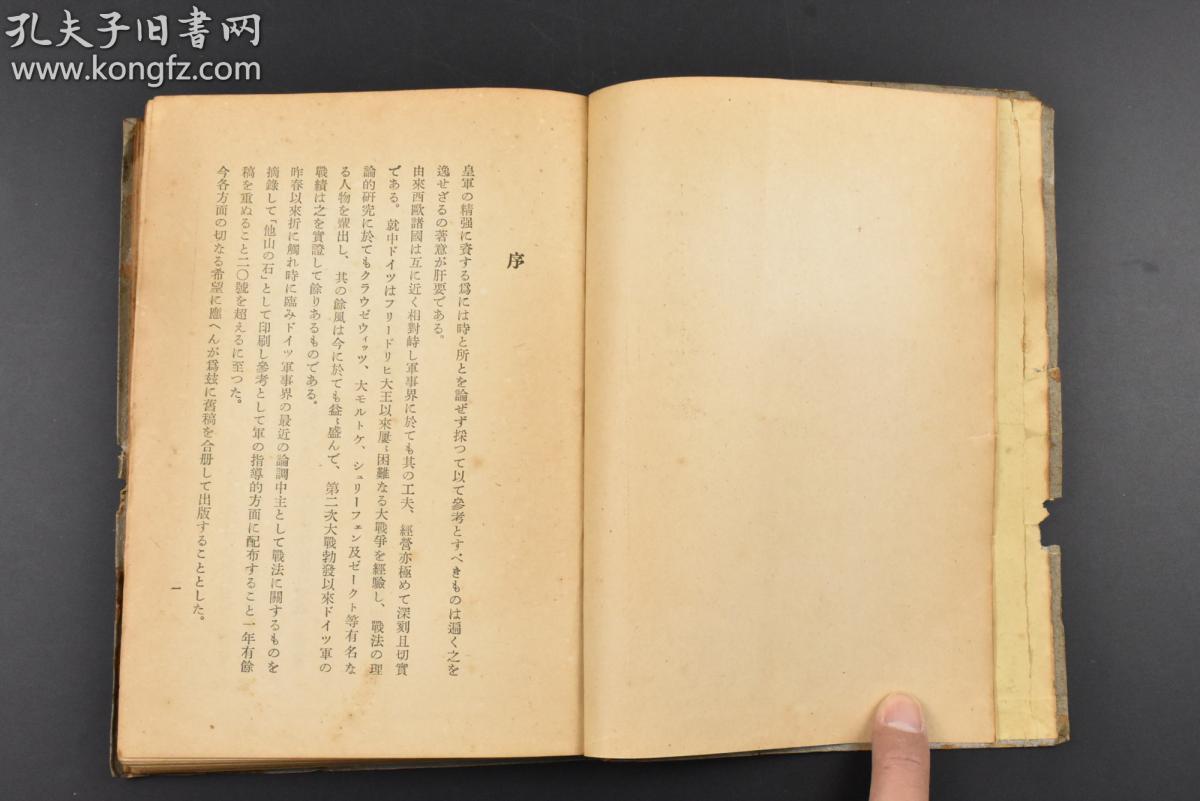 孔夫子旧书网
www.kongfz.com
序
皇軍の精强に資する爲には時と所とを論ぜず採つて以て參考とすべきものは遍く之を
逸せざるの著意が肝要である。
由來西歐諸國は互に近く相對峙し軍事界に於ても其の工夫、經營亦極めて深刻且切實
である。就中ドイツはフリードリヒ大王以來屢〻困難なる大戰爭を經驗し、戰法の理
論的研究に於てもクラウゼウィッツ、大モルトケ、シュリーフェン及ゼークト等有名な
る人物を輩出し、其の餘風は今に於ても益〻盛んで、第二次大戰勃發以來ドイツ軍の
戰績は之を實證して餘りあるものである。
昨春以來折に觸れ時に臨みドイツ軍事界の最近の論調中主として戰法に關するものを
摘錄して「他山の石」として印刷し參考として軍の指導的方面に配布すること一年有餘
稿を重ぬること二〇號を超えるに至つた。
今各方面の切なる希望に應へんが爲玆に舊稿を合册して出版することとした。
一